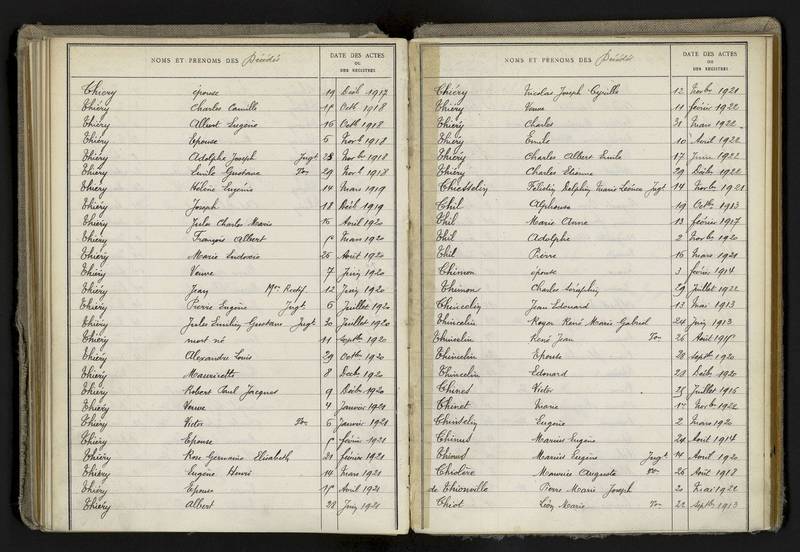 NOMS ET PRENOMS DES Décédés
DATE DES ACTES
OU
DES REGISTRES
Thiéry épouse 19 Décb 1917
Thiéry Charles Camille Octb 1918
Thiéry Albert Eugène 16 Octb 1918
Thiéry Epouse 5 Novb 1918
Thiéry Adolphe Joseph Jugt 28 Novb 1918
Thiéry Emile Gustave Ton 29 Novb 1918
Thiéry Hélène Eugénie 14 Mars 1919
Thiéry Joseph 18 Décb 1919
Thiéry Jules Charles Marie 16 Avril 1920
Thiéry François Albert Mars 1920
Thiéry Marie Ludovic 25 Août 1920
Thiéry Veuve 7 Juin 1920
Thiéry Jean Rectif 12 Juin 1920
Thiéry Pierre Eugène Jugt 6 Juillet 1920
Thiéry Jules Emilien Gustave Jugt 20 Juillet 1920
Thiéry mort né 11 Septb 1920
Thiéry Alexandre Louis 29 Octb 1920
Thiéry Mauricette 8 Decb 1920
Thiéry Robert Paul Jacques 9 Décb 1920
Thiéry Veuve 4 Janvier 1921
Thiéry Victor Ton 6 Janvier 1921
Thiéry Epouse février 1921
Thiéry Rose Germaine Elisabeth 21 février 1921
Thiéry Eugène Henri 14 Mars 1921
Thiéry Epouse Avril 1921
Thiéry Albert 28 Juin 1921
NOMS ET PRENOMS DES Décédés
DATE DES ACTES
OU
DES REGISTRES
Thiéry Nicolas Joseph Cyrille 12 Novbre 1921
Thiéry Veuve 11 février 1922
Thiéry Charles 31 Mars 1922
Thiéry Emile 10 Avril 1922
Thiéry Charles Albert Emile 17 Juin 1922
Thiéry Charles Etienne 29 Décbre 1922
Delphin Marie Léonce Jugt 14 Novbre 1921
Thil Alphonse 19 Octbre 1913
Thil Marie Anne 13 février 1917
Thil Adolphe 2 Novbre 1920
Thil Pierre 16 Mars 1921
Thimon épouse 3 février 1914
Thimon Charles Séraphin 29 Juillet 1922
Thincelin Jean Edouard 13 Mai 1913
Thincelin Roger René Marie Gabriel 24 Juin 1913
Thincelin René Jean Ton 26 Août
Thincelin Epouse 28 Septb 1920
Thincelin Edouard 28 Décb 1920
Victor Juillet 1916
Marie Novbre
Eugène 2 Mars 1920
Marius Eugène 24 Avril 1914
Marius Eugène Jugt 14 Avril 1920
Maurice Auguste Ton 26 Août 1918
de Thionville Pierre Marie Joseph 20 Mai 1922
Thiot Léon Marie Ton 22 Septb 1913